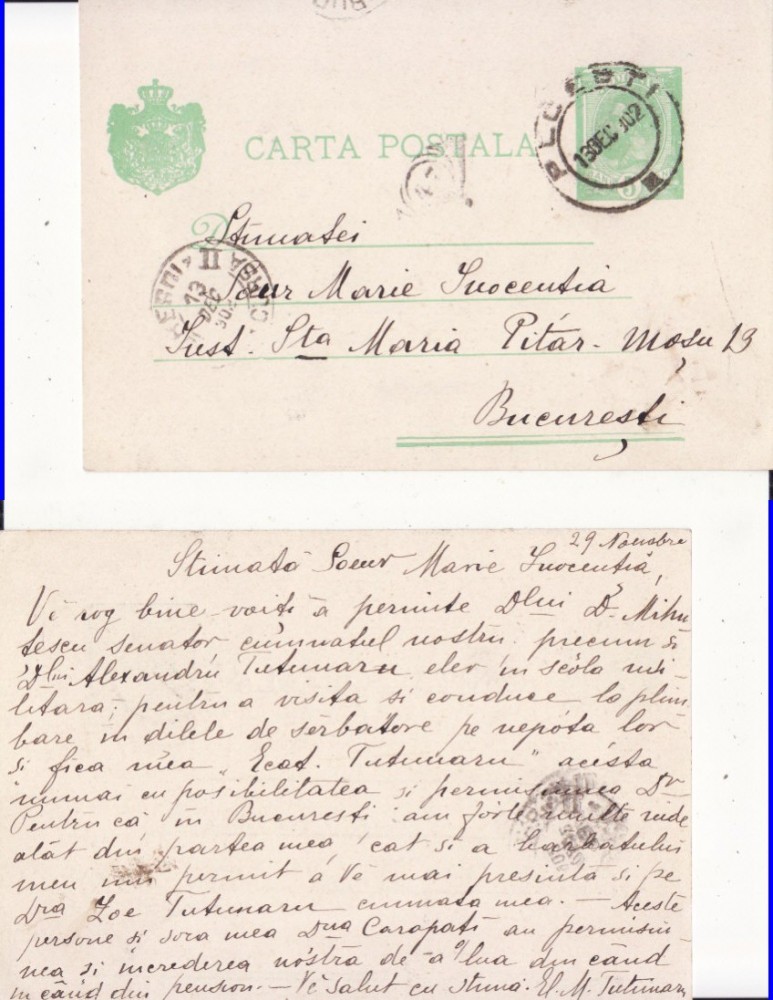 BUC
CARTA POSTALA
PLOESTI
13 DEC 902
5
D
Stimatei
Soeur Marie Inocentia
Inst. Sta Maria Pitar-Moșu 13
București
II
13 DEC 902
29 Noembre
Stimată Soeur Marie Inocentiă,
Vĕ rog bine-voiți a permite Dlui D. Mihu
tescu senator cumnatul nostru precum și
Dlui Alexandru Tutunaru elev in scóla mi-
litara; pentru a visita si conduce la plim
bare in dilele de sĕrbatóre pe nepóta lor
si fica mea „Ecat. Tutunaru" acésta
numai cu posibilitatea si permisiunea Dv
Pentru că in Bucuresti am fórte multe rude
atăt din partea mea, cat si a barbatului
meu imi permit a Vĕ mai presinta si pe
Dna Zoe Tutunaru cumnata mea. — Aceste
persone si sora mea Dna Carapați au permisiu-
nea si increderea nóstra de-a o lua din când
in când din pension. — Vĕ salut cu stimă. El. M. Tutunaru